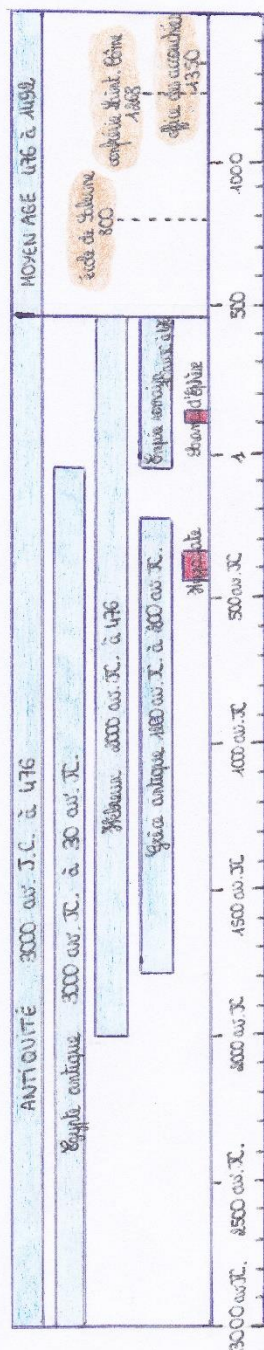 ANTIQUITÉ 3000 av. J.C. à 476
MOYEN AGE 476 à 1492
Egypte antique 3000 av. JC. à 30 av. JC.
Hébreux 2000 av. JC. à 476
Grèce antique 1800 av. JC. à 200 av. JC.
Empire romain
Hippocrate
Soranos d'Ephèse
école de Salerne
800
confrérie Saint Côme
1268
office des accouchées
1350
3000 av JC.
2500 av. JC.
2000 av. JC
1500 av. JC
1000 av. JC
500 av. JC
1
500
1000